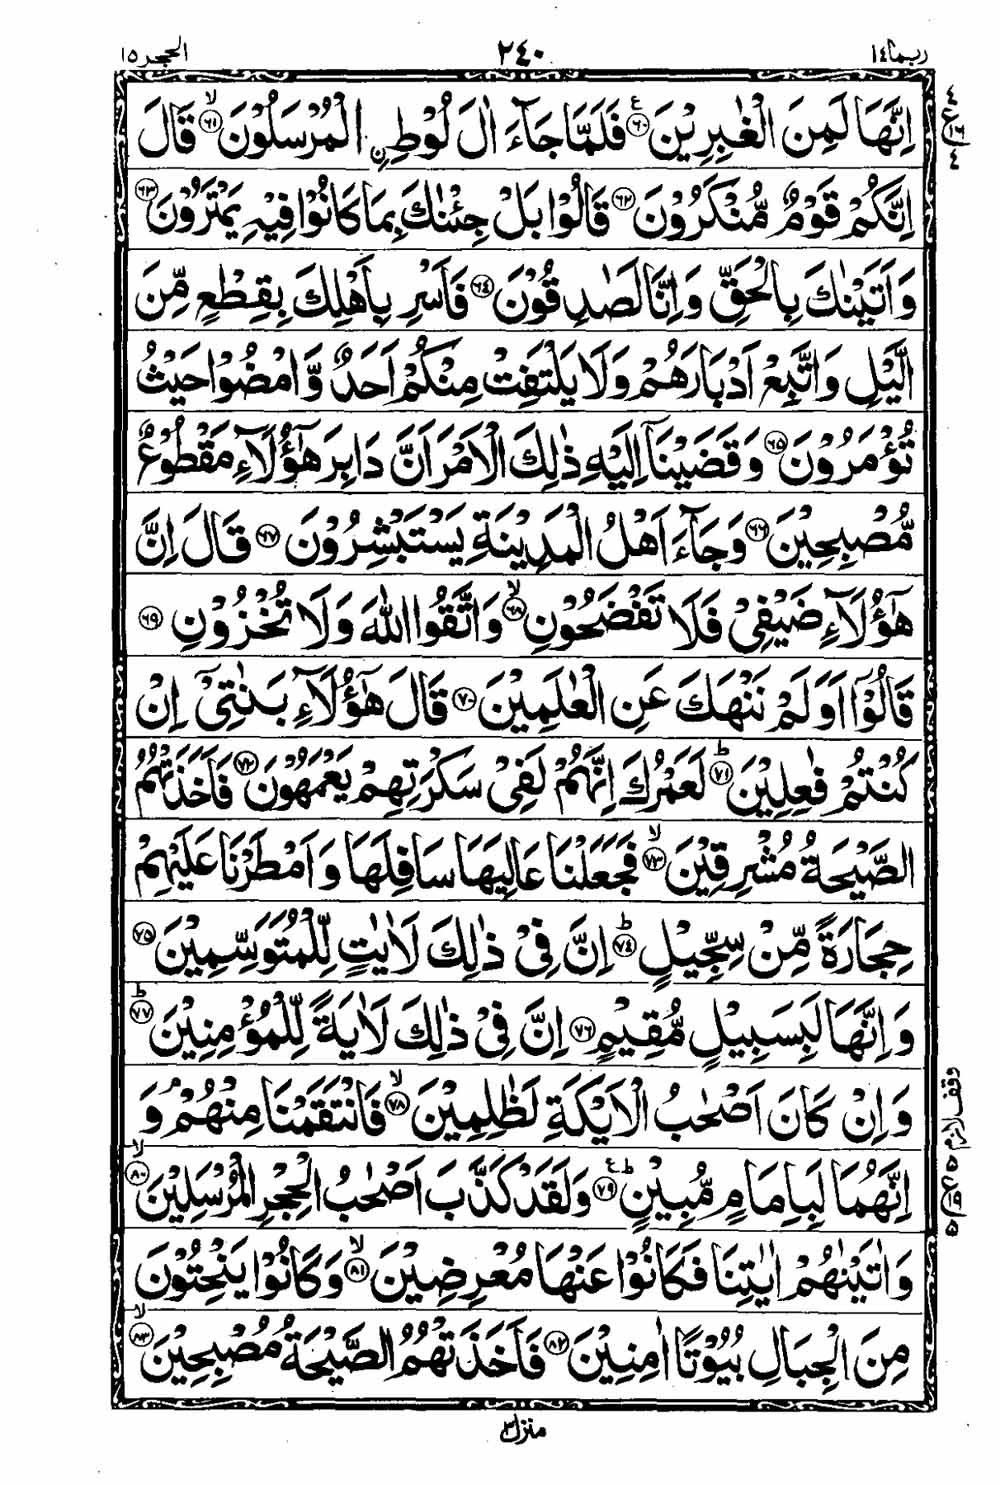 ربما ١٤
٢٤٠
الحجر ١٥
اِنَّهَا لَمِنَ الْغٰبِرِيْنَ ﴿٦٠﴾ ع فَلَمَّا جَآءَ اٰلَ لُوْطِ ࣙالْمُرْسَلُوْنَ ﴿٦١﴾ ۙ قَالَ
اِنَّكُمْ قَوْمٌ مُّنْكَرُوْنَ ﴿٦٢﴾ قَالُوْا بَلْ جِئْنٰكَ بِمَا كَانُوْا فِيْهِ يَمْتَرُوْنَ ﴿٦٣﴾
وَاَتَيْنٰكَ بِالْحَقِّ وَاِنَّا لَصٰدِقُوْنَ ﴿٦٤﴾ فَاَسْرِ بِاَهْلِكَ بِقِطْعٍ مِّنَ
الَّيْلِ وَاتَّبِعْ اَدْبَارَهُمْ وَلَا يَلْتَفِتْ مِنْكُمْ اَحَدٌ وَّامْضُوْا حَيْثُ
تُؤْمَرُوْنَ ﴿٦٥﴾ وَقَضَيْنَآ اِلَيْهِ ذٰلِكَ الْاَمْرَ اَنَّ دَابِرَ هٰٓؤُلَآءِ مَقْطُوْعٌ
مُّصْبِحِيْنَ ﴿٦٦﴾ وَجَآءَ اَهْلُ الْمَدِيْنَةِ يَسْتَبْشِرُوْنَ ﴿٦٧﴾ قَالَ اِنَّ
هٰٓؤُلَآءِ ضَيْفِيْ فَلَا تَفْضَحُوْنِ ﴿٦٨﴾ ۙ وَاتَّقُوا اللّٰهَ وَلَا تُخْزُوْنِ ﴿٦٩﴾
قَالُوْٓا اَوَلَمْ نَنْهَكَ عَنِ الْعٰلَمِيْنَ ﴿٧٠﴾ قَالَ هٰٓؤُلَآءِ بَنٰتِيْٓ اِنْ
كُنْتُمْ فٰعِلِيْنَ ﴿٧١﴾ ؕ لَعَمْرُكَ اِنَّهُمْ لَفِيْ سَكْرَتِهِمْ يَعْمَهُوْنَ ﴿٧٢﴾ فَاَخَذَتْهُمُ
الصَّيْحَةُ مُشْرِقِيْنَ ﴿٧٣﴾ ۙ فَجَعَلْنَا عَالِيَهَا سَافِلَهَا وَاَمْطَرْنَا عَلَيْهِمْ
حِجَارَةً مِّنْ سِجِّيْلٍ ﴿٧٤﴾ ؕ اِنَّ فِيْ ذٰلِكَ لَاٰيٰتٍ لِّلْمُتَوَسِّمِيْنَ ﴿٧٥﴾
وَاِنَّهَا لَبِسَبِيْلٍ مُّقِيْمٍ ﴿٧٦﴾ اِنَّ فِيْ ذٰلِكَ لَاٰيَةً لِّلْمُؤْمِنِيْنَ ﴿٧٧﴾ ؕ
وَاِنْ كَانَ اَصْحٰبُ الْاَيْكَةِ لَظٰلِمِيْنَ ﴿٧٨﴾ ۙ فَانْتَقَمْنَا مِنْهُمْ ۘ وَ
اِنَّهُمَا لَبِاِمَامٍ مُّبِيْنٍ ﴿٧٩﴾ ؕ ع وَلَقَدْ كَذَّبَ اَصْحٰبُ الْحِجْرِ الْمُرْسَلِيْنَ ﴿٨٠﴾ ۙ
وَاٰتَيْنٰهُمْ اٰيٰتِنَا فَكَانُوْا عَنْهَا مُعْرِضِيْنَ ﴿٨١﴾ ۙ وَكَانُوْا يَنْحِتُوْنَ
مِنَ الْجِبَالِ بُيُوْتًا اٰمِنِيْنَ ﴿٨٢﴾ فَاَخَذَتْهُمُ الصَّيْحَةُ مُصْبِحِيْنَ ﴿٨٣﴾ ۙ
٤
ع ١٦
٤
وقف لازم
٥
ع ١٩
٥
منزل ٣